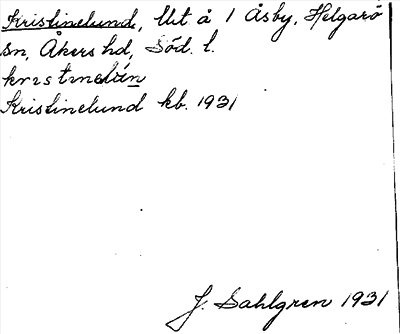 Kristinelund, lht å 1 Åsby, Helgarö
sn, Åkers hd, Söd. l.
krɪstɪnelún
Kristinelund kb. 1931
J. Sahlgren 1931